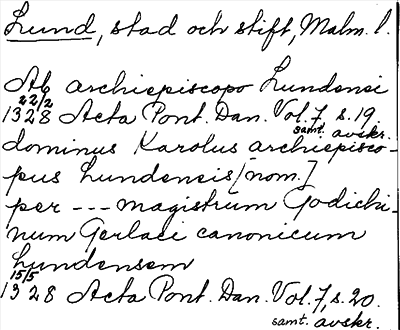 Lund, stad och stift, Malm. l.
Ab archiepiscopo Lundensi
22/2
1328 Acta Pont. Dan. Vol. 7, s. 19.
samt. avskr.
dominus Karolus archiepisco-
pus Lundensis [nom.]
per --- magistrum Godichi-
num Gerlaci canonicum
Lundensem
15/5
1328 Acta Pont. Dan. Vol. 7, s. 20.
samt. avskr.